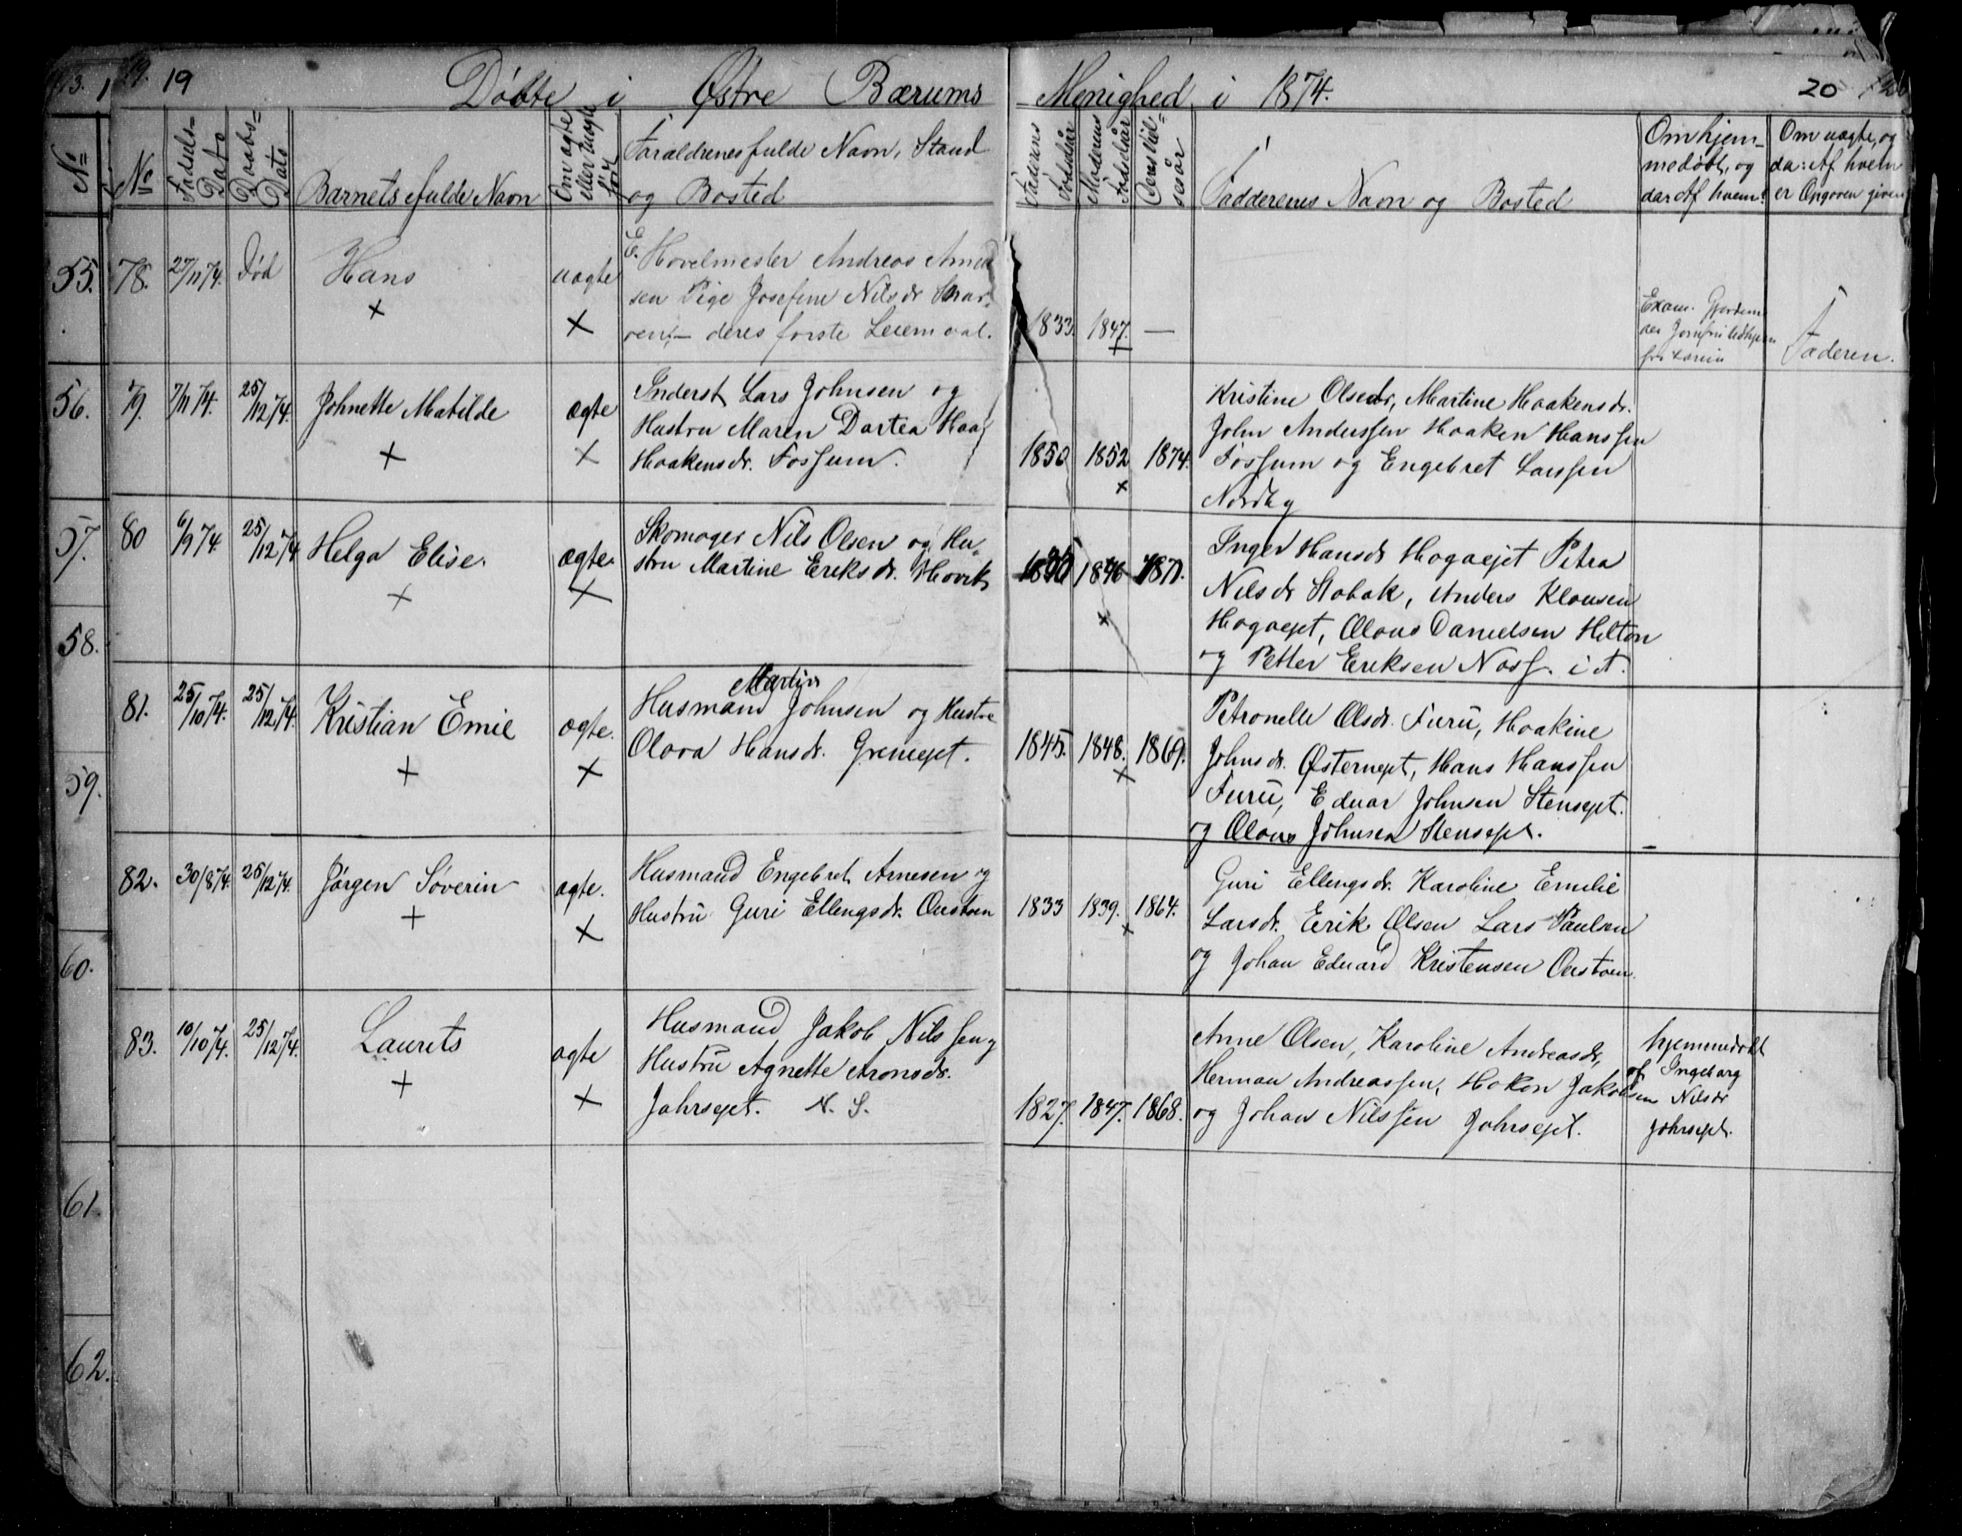 19
Døbte i Østre Bærums Menighed i 1874.
20
No
No
Fødsels-
Dato
Daabs-
Dato
Barnets fulde Navn
Om ægte
eller uægte
født
Forældrenes fulde Navn, Stand
og Bosted
Faderens
Fødselsår
Moderens
Fødselsår
Faddernes Navn og Bosted
Om hjem-
medøbt, og
da: Af hvem?
Om uægte, og
da: Af hvem
er Opgaven given
55.
78.
27/11 74.
Død
Hans
+
uægte
×
Hovelmester Andreas
sen Pige Josefine Nilsdr
deres første Leiemaal.
1833.
1847.
—
Exam. Gjordem
Faderen.
56.
79.
7/11 74.
25/12 74.
Johnette Matilde
+
ægte
×
Inderst Lars Johnsen og
Hustru Maren Dortea Haa-
Haakensdr. Fossum.
1850
1852
×
1874.
Kristine Olsedr, Martine Haakensdr.
John Anderssen Haaken Hanssen
Fossum og Engebret Larssen
Nordby
57.
80
6/9 74.
25/12 74
Helga Elise.
+
ægte.
×
Skomager Nils Olsen og Hu-
stru Martine Eriksdr. Høvik
1846
×
1871.
Inger Hansdr Hagaejet Petra
Nilsdr Stabæk, Anders Klausen
Hagaejet, Olaus Danielsen Hilton
og Petter Eriksen Næss. i A.
58.
81.
25/10 74.
25/12 74.
Kristian Emil
+
ægte.
×
Martin
Husmand Johnsen og Hustru
Olava Hansdr. Griniejet.
1845.
1848.
×
1869.
Petronelle Olsdr. Furu, Haakine
Johnsdr. Østernejet, Hans Hanssen
Furu, Eduar Johnsen Stensejet.
og Olaus Johnsen Stensejet.
59.
82.
30/8 74.
26/12 74.
Jørgen Søverin
+
ægte.
×
Husmand Engebret Arnesen og
Hustru Guri Ellengsdr. Oustøen
1833
1839.
×
1864.
Guri Ellengsdr. Karoline Emilie
Larsdr. Erik Olsen Lars Paulsen
og Johan Eduard Kristensen Oustøen.
60.
83.
10/10 74.
25/12 74.
Laurits
+
ægte
×
Husmand Jakob Nilssen og
Hustru Agnette Aronsdr.
Jahrsejet. N. S.
1827.
1847.
1868.
Anne Olsen, Karoline Andreasdr,
Herman Andreassen, Hokon Jakobsen
og Johan Nilssen Jahrsejet.
hjemmedøbt
af Ingeborg
Nilsdr
Jahrsejet.
61.
62.